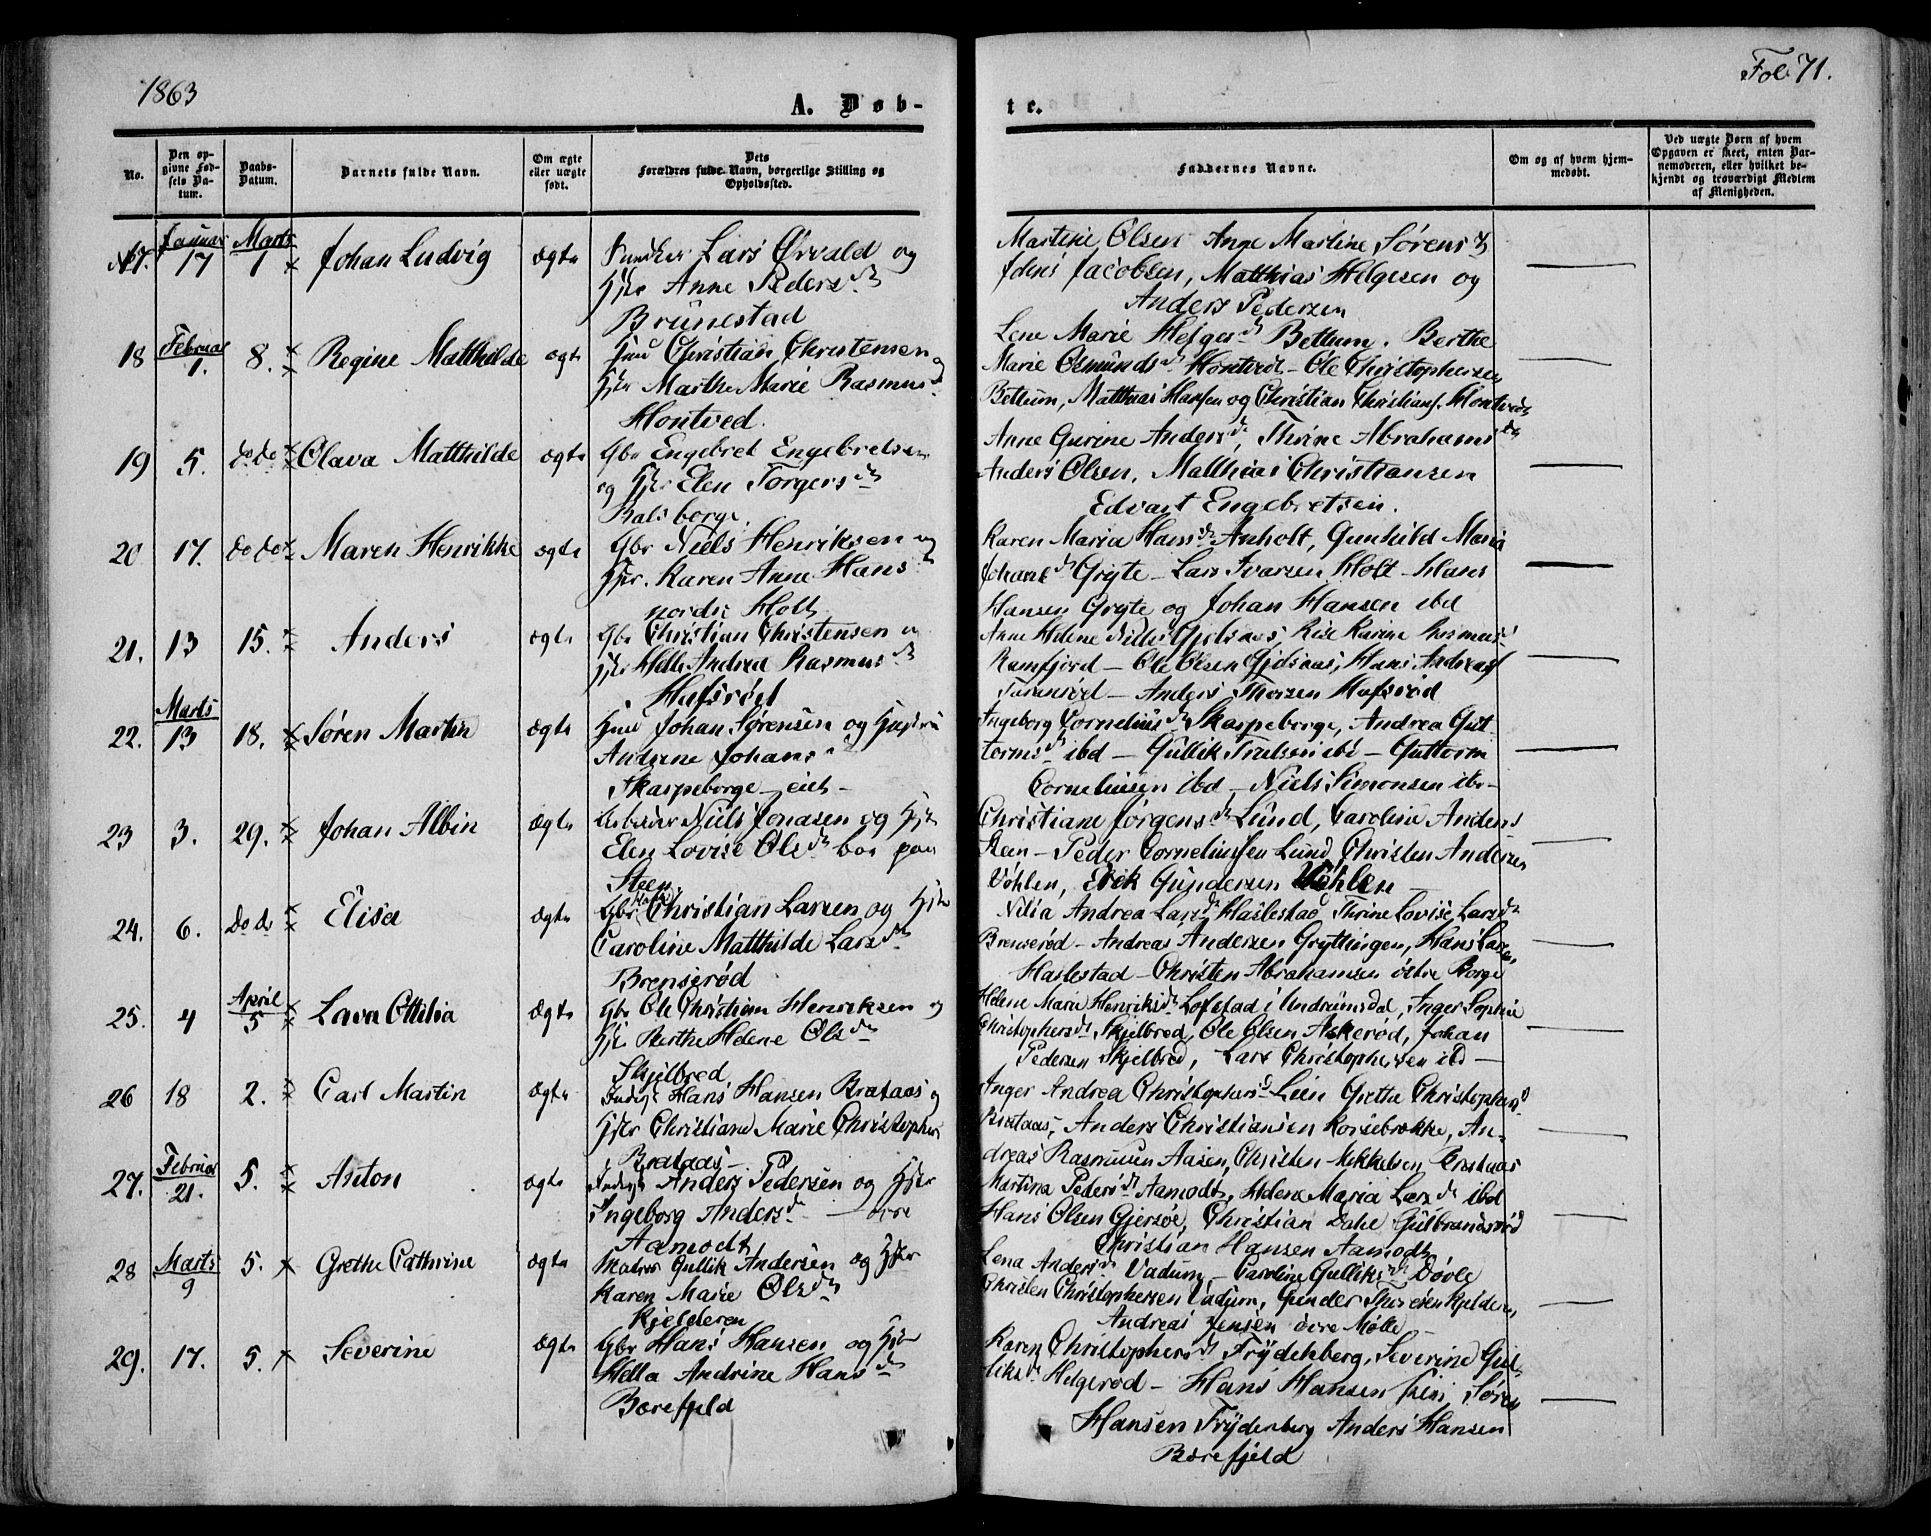 1863
Fol. 71.
A. Døb-
te.
No.
Den op-
givne Fød-
sels Da-
tum.
Daabs-
Datum.
Barnets fulde Navn.
Om ægte
eller uægte
født.
Dets
Forældres fulde Navn, borgerlige Stilling og
Opholdssted.
Faddernes Navne.
Om og af hvem hjem-
medøbt.
Ved uægte Børn af hvem
Opgaven er skeet, enten Bar-
nemoderen, eller hvilket be-
kjendt og troværdigt Medlem
af Menigheden.
Januar Marts
17. 17 1 Johan Ludvig ægte Lars Ørvald og
Hjer Anne Peders dtr
Brunestad
Olsen Martine Sørens dtr
Jacobsen, Matthias Helgesen og
Anders Pedersen
Februar
18 1. 8. Regine Matthilde ægte Huu Christian Christensen og
Hjer Marthe Marie Rasmus d.
Hontved.
Lene Marie Helges dtr Bettum. Berthe
Marie Osmunds dtr Hontved - Ole Christophersen
Bettum, Matthias Hansen og Christian Christians. Hontved
19 5. do do Olava Matthilde ægte Gbr Engebret Engebretsen
og Hjer Elen Torgers dtr
Balsborge.
Anne Gurine Anders dtr, Thrine Abrahams dtr
Anders Olsen, Matthias Christiansen
Edvart Engebretsen.
20 17. do do Maren Henrikke ægte Gbr Niels Henriksen og
Hjer. Karen Anne Hans dtr
nordre Holt
Karen Maria Hans dtr Anholt, Gunhild Maria
Johans dtr Gryte - Lars Ivarsen Holt - Hans
Hansen Gryte og Johan Hansen ibd
21. 13 15. Anders ægte Gbr Christian Christensen og
Hjer Helle Andrea Rasmus dtr
Hafsrød
Anne Helene Niels Gjelsaas, Karine Rasmus
Ramfjord - Ole Olsen Gjelsaas, Hans Andreas
- Anders Thorsen Hafsrød
Marts
22. 13 18. Søren Martin ægte Huu Johan Sørensen og Hustru
Andrine Johans
Skarpeborge - eiet -
Ingeborg Cornelius dtr Skarpeborge, Andrea Gut-
torms dtr ibd - Gullik Trulsen ibd - Guttorm
Corneliusen ibd - Niels Simonsen ibd -
23 3. 29. Johan Albin ægte Arbeider Niels Jonasen og Hjer
Elen Lovise Ols dtr boe paa
Steen
Christiane Jørgens dtr Lund, Caroline Anders
Steen - Peder Corneliussen Lund, Christen Andersen
Vøhlen, Erik Gundersen Vøhlen
24. 6. do do Elisa ægte Gbr Christian Larsen og Hjer
Caroline Matthilde Lars dtr
Brenserød
Nilia Andrea Lars dtr Haslestad, Thrine Lovise Lars dtr
Brenserød - Andreas Andersen Gryttingen, Hans Larsen
Haslestad - Christen Abrahamsen østre Borge
April
25. 4 5 Lava Ottilia ægte Gbr Ole Christian Henriksen og
Hjer Berthe Helene Ols dtr
Skjelbred
Helene Marie Henriks dtr Lofstad i Undrumsdal, Inger Sophie
Christophers dtr Skjelbred, Ole Olsen Askerød, Johan
Pedersen Skjelbred, Lars Christophersen ibd -
26 18 2. Carl Martin ægte Inds. Hans Hansen Brataas og
Hjer Christiane Marie Christophers
Brataas -
Inger Andrea Christophers d. Lein Grethe Christophers d
Brataas, Anders Christiansen Korsebrække, An-
dreas Rasmusen Aasen, Christen Mikkelsen Brataas
Februar
27. 21. 5. Anton ægte Inds. Anders Pedersen og Hjer
Ingeborg Anders d. - øvre
Aamodt
Martina Peders dtr Aamodt, Helene Maria Lars dtr ibd
Hans Olsen Gjersøe, Christian Dahl Gulbrandsrød
Christian Hansen Aamodt
Marts
28 9 5. Grethe Cathrine ægte Matros Gullik Andersen og Hjer
Karen Marie Ols dtr
Kjelderen
Lena Anders dtr Vadum, - Caroline Gulliks dtr Døvle
Christen Christophersen Vadum, Gunder Thoresen Kjelderen,
Andreas Jensen øvre Mølle -
29. 17. 5. Severine ægte Gbr Hans Hansen og Hjer
Hella Andrine Hans dtr
Borefjeld
Karen Christophers dtr Frydenberg, Severine Gul-
liks dtr Helgerød - Hans Hansen Søren
Hansen Frydenberg Anders Hansen
Borefjeld